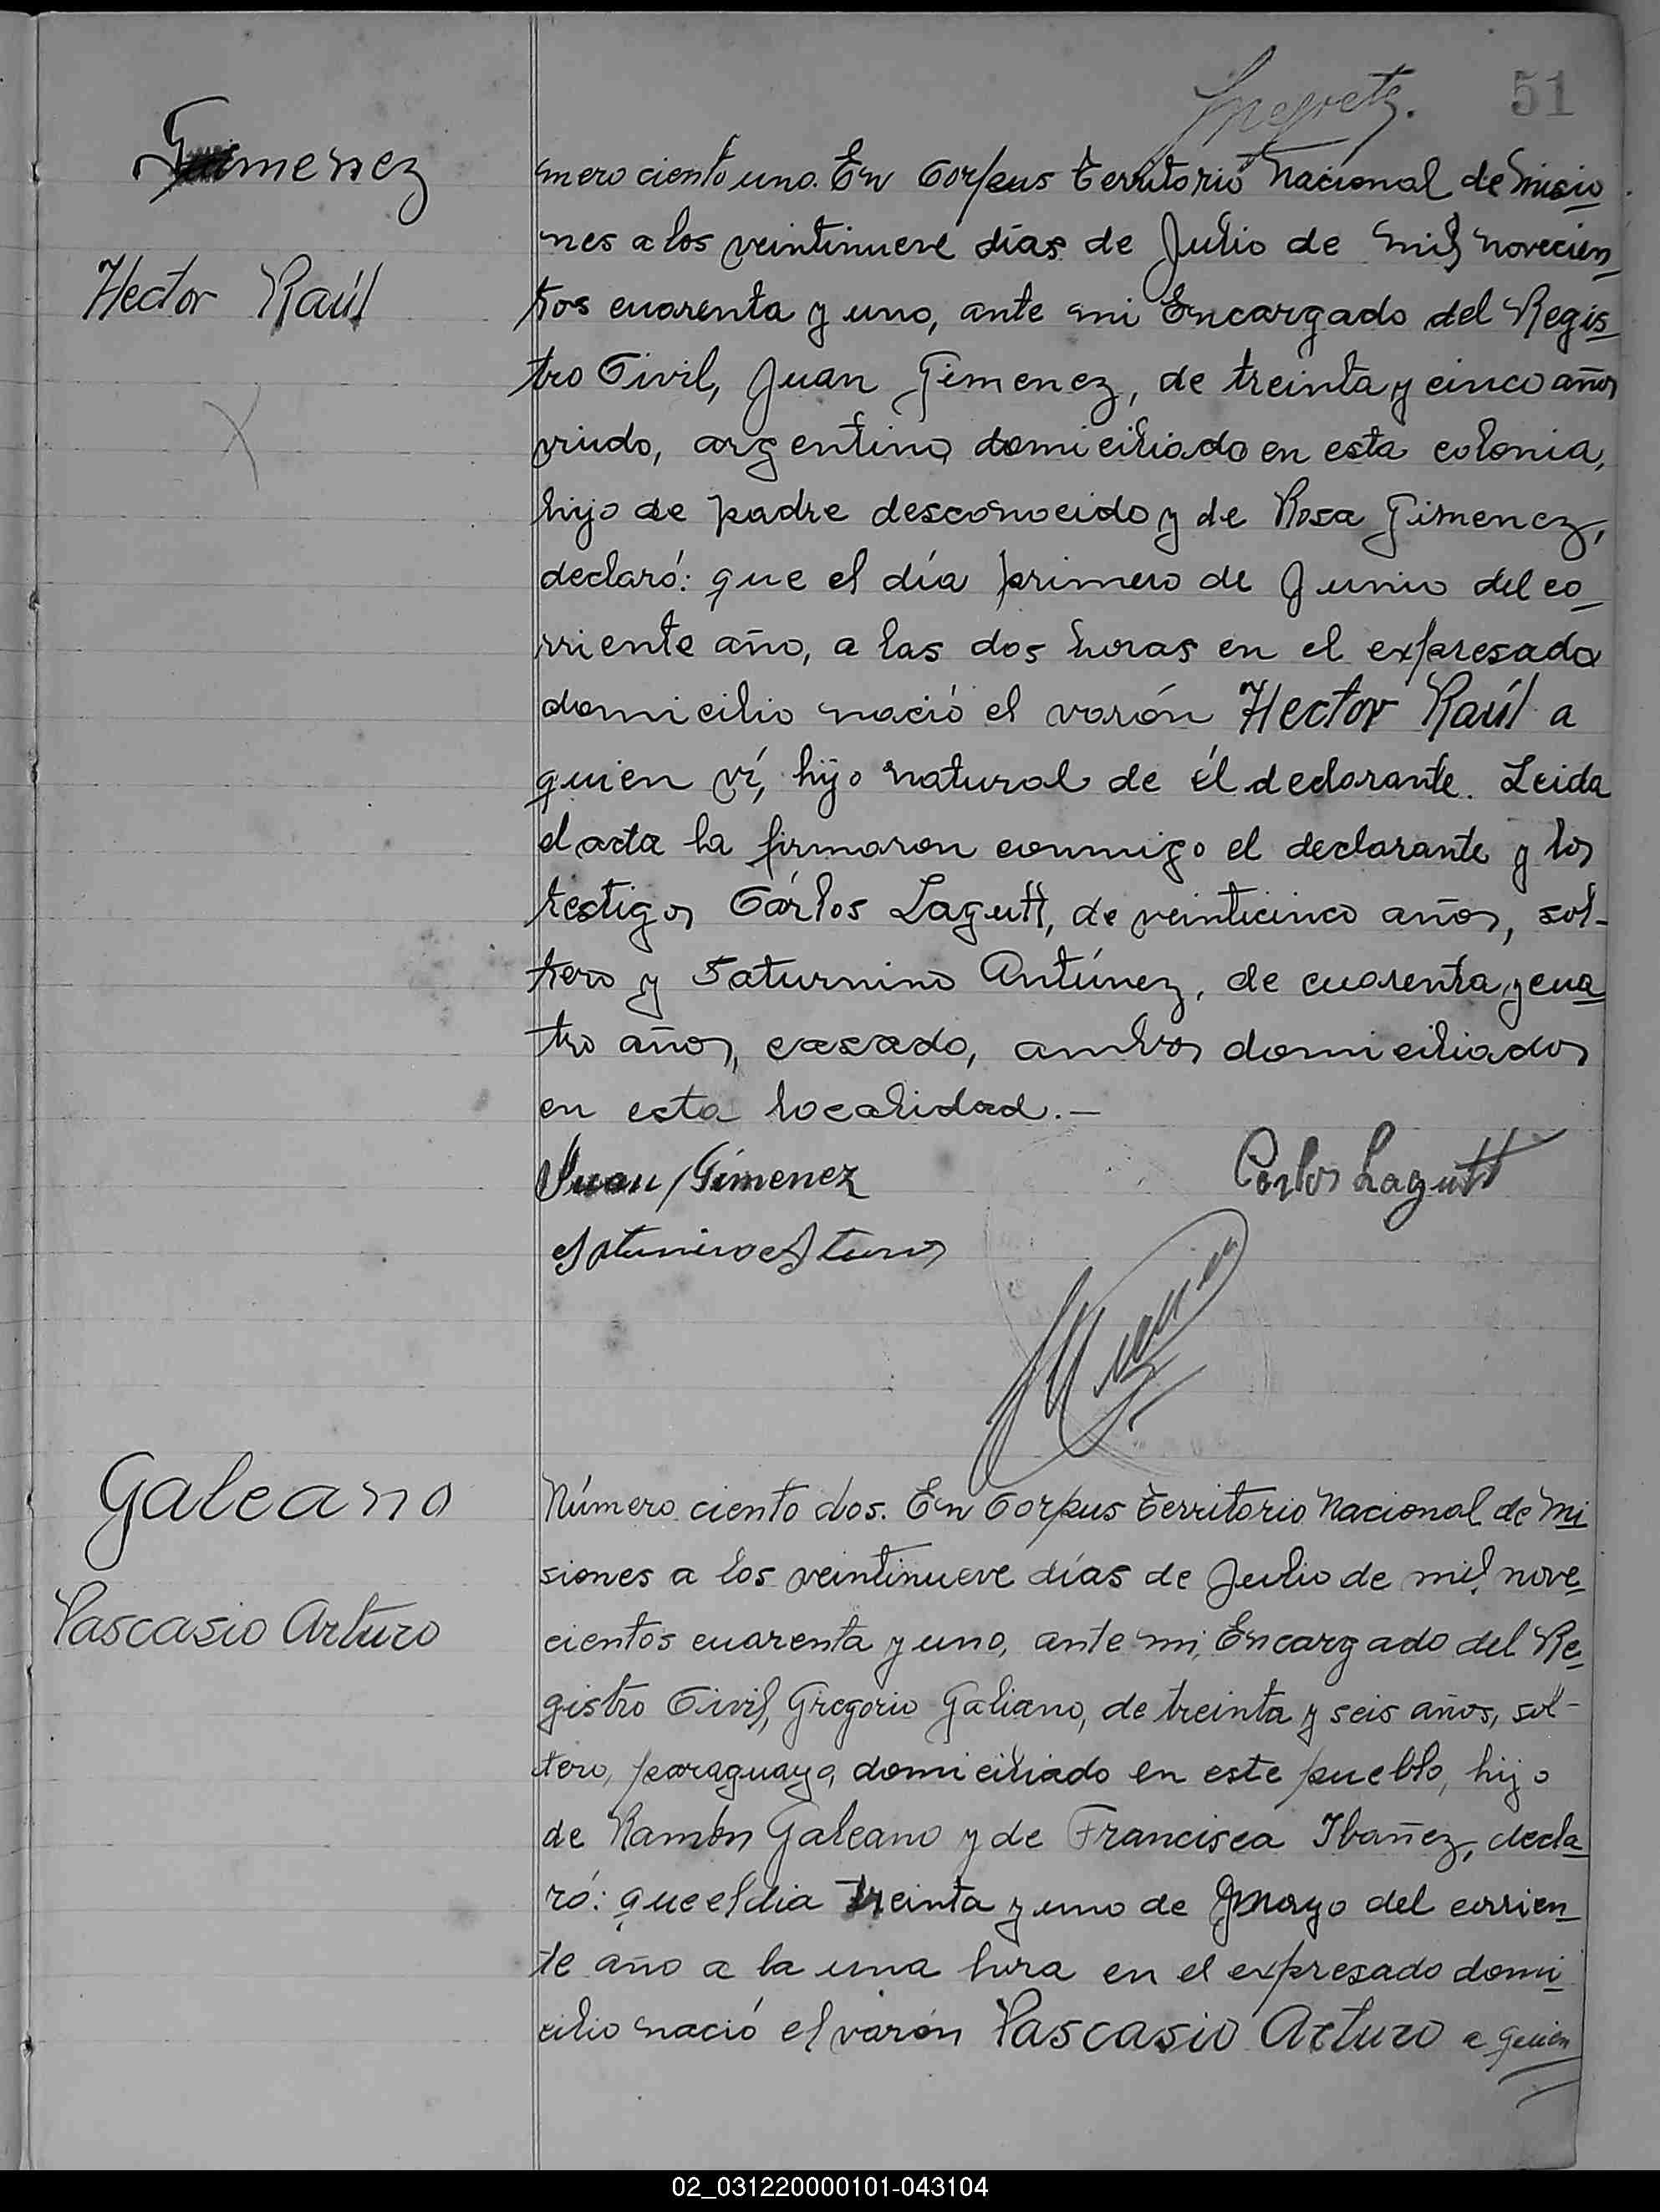 51
Gimenez
Hector Raúl
mero ciento uno. En Corpus territorio Nacional de Misio
nes a los veintinueve días de Julio de mil novecien
tos cuarenta y uno, ante mi Encargado del Regis
tro Civil, Juan Gimenez, de treinta y cinco años
viudo, argentino domiciliado en esta colonia,
hijo de padre desconocido y de Rosa Gimenez,
declaró: que el día primero de Junio del co
rriente año, a las dos horas en el expresado
domicilio nació el varón Hector Raúl a
quien ví, hijo natural de él declarante. Leida
el acta la firmaron conmigo el declarante y los
testigos Cárlos Lagutt, de veinticinco años, sol-
tero y Saturnino Antúnez, de cuarenta y cua
tro años, casado, ambos domiciliados
en esta localidad.-
Juan Gimenez
Carlos Lagutt
Galeano
Pascasio Arturo
Número ciento dos. En Corpus territorio Nacional de Mi
siones a los veintinueve días de Julio de mil nove
cientos cuarenta y uno, ante mi, Encargado del Re
gistro Civil, Gregorio Galiano, de treinta y seis años, sol-
tero, paraguayo, domiciliado en este pueblo, hijo
de Ramón Galeano y de Francisca Ibañez, decla
ró: que el dia treinta y uno de Mayo del corrien
te año a la una hora en el expresado domi
cilio nació el varón Pascasio Arturo a quien
02_031220000101-043104